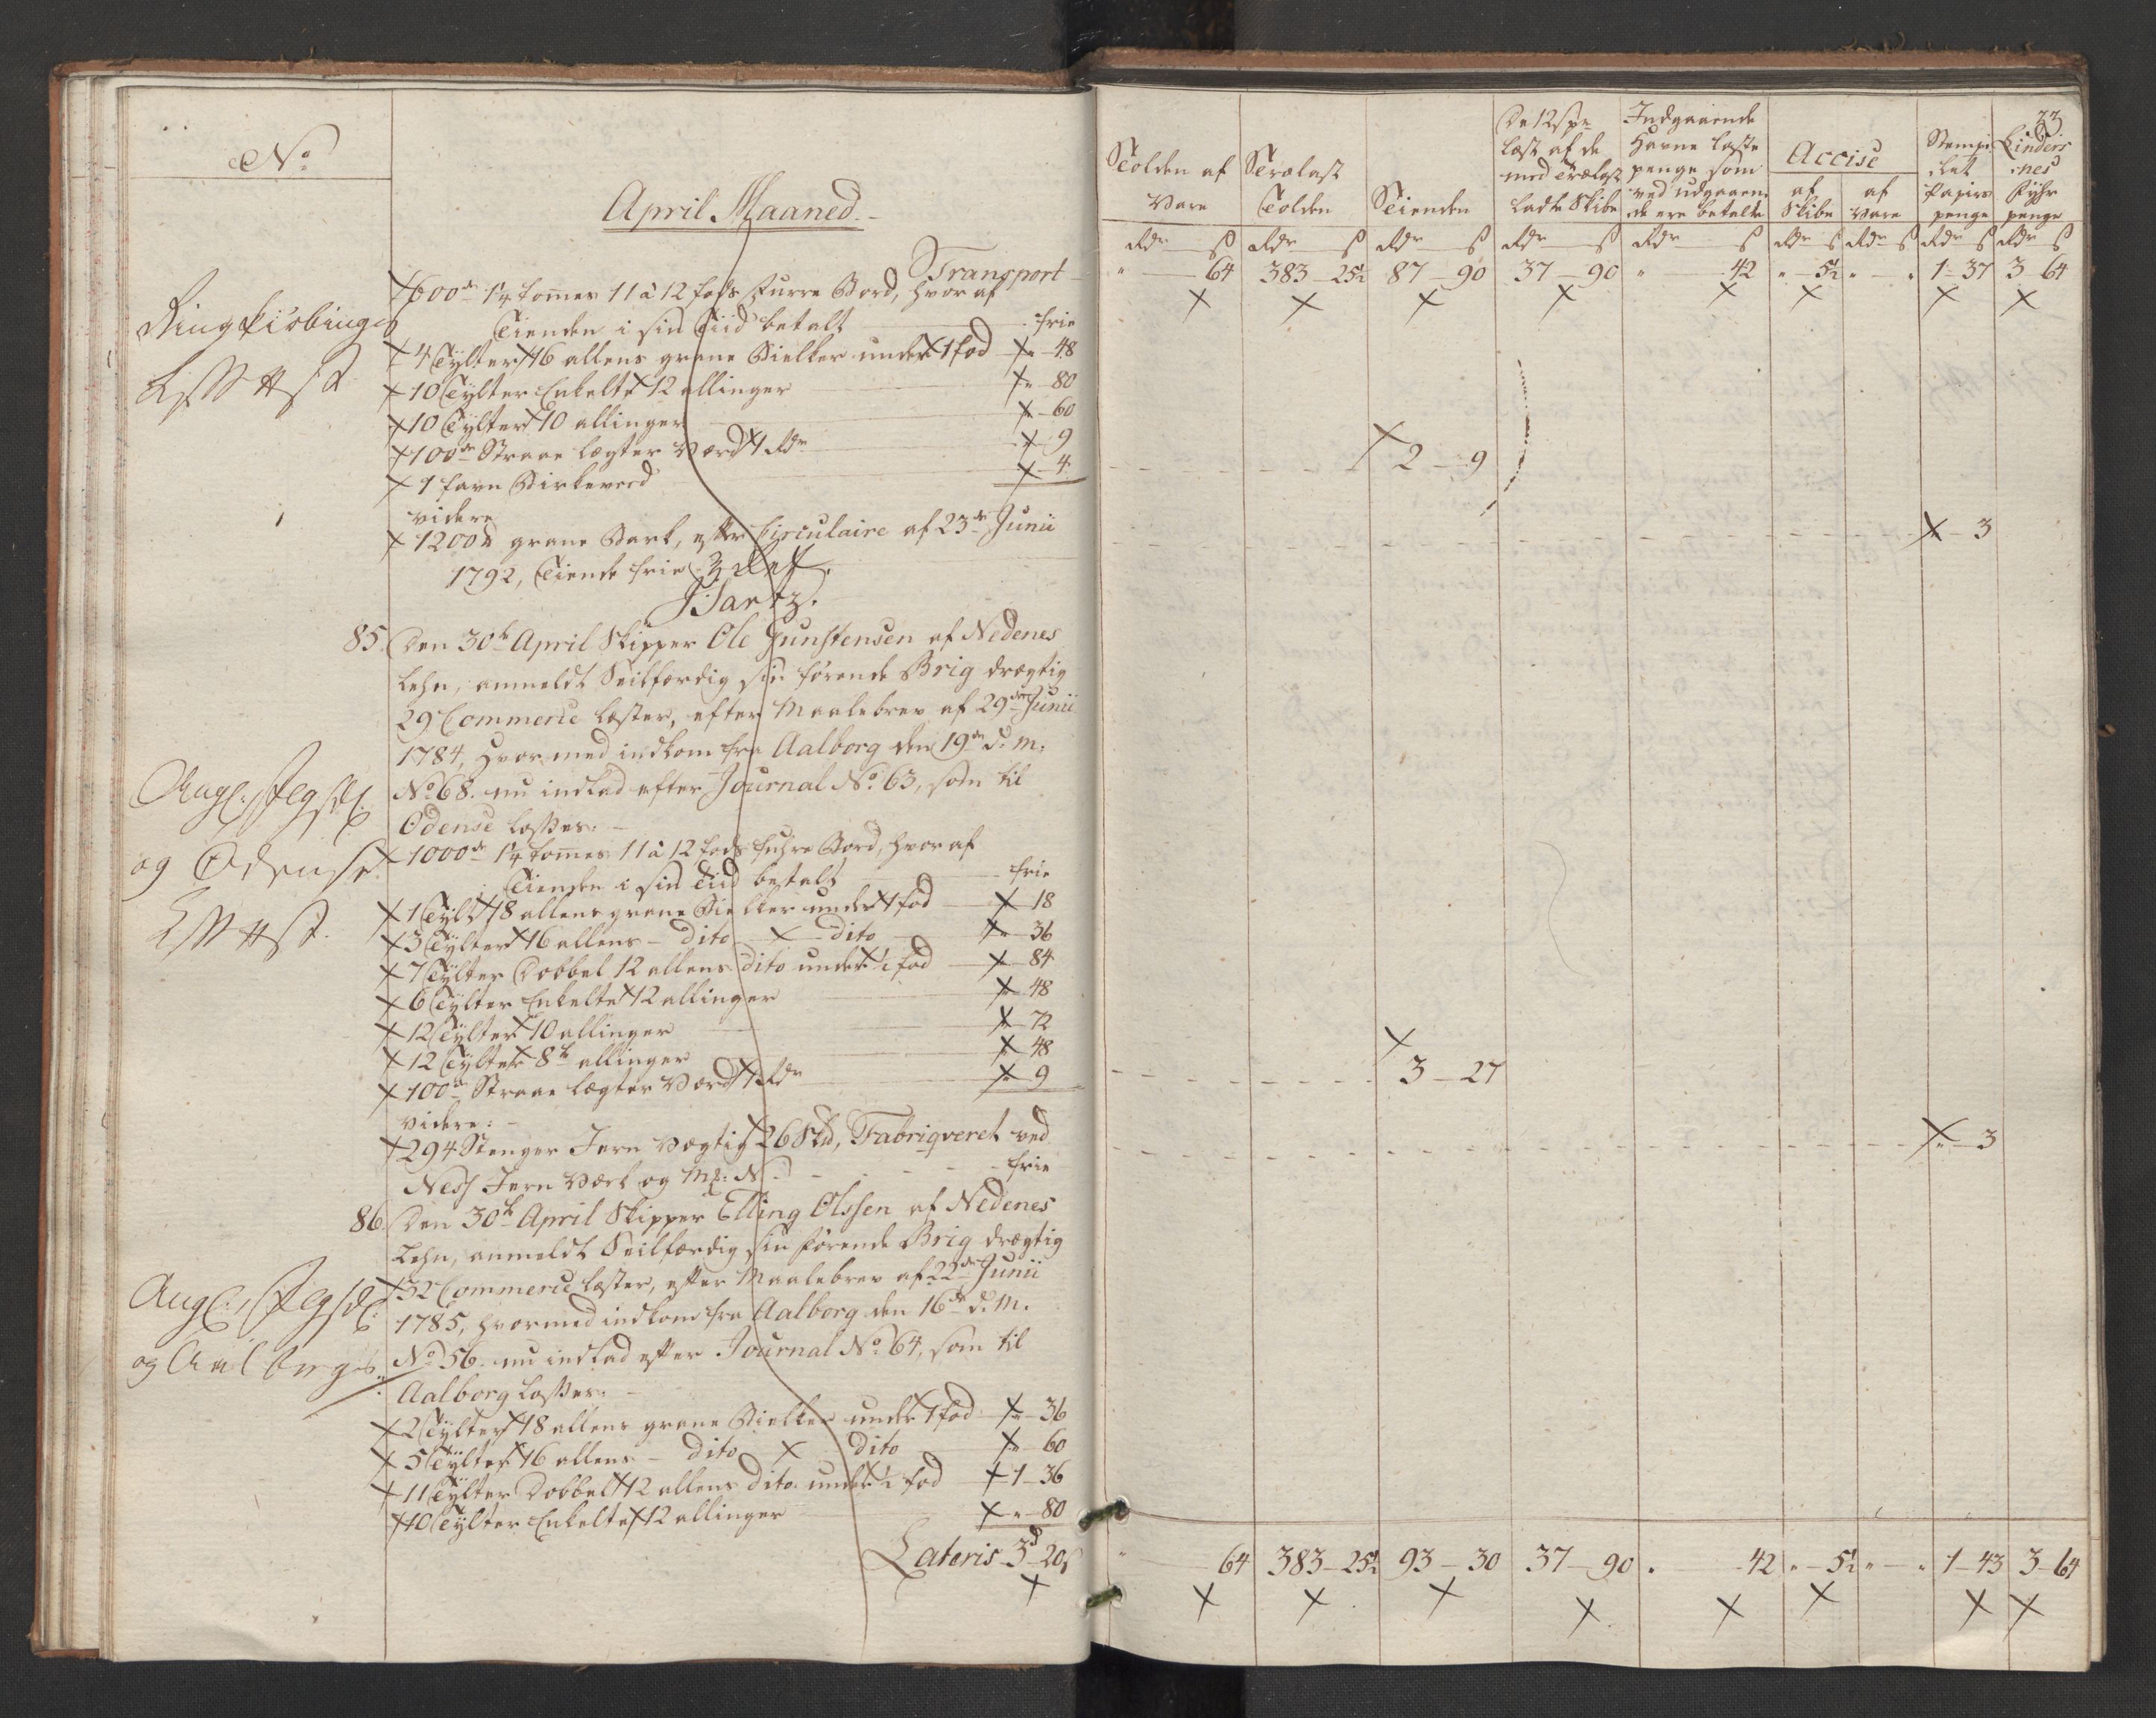 No
April Maaned.
Transport
Ringkiøbing
600de 1¼ tommes 11 à 12 fods Furre Bord, hvor af
Tienden i sin Tiid betalt frie
4 Tylter 16 allens grane Bielker under 1 fod " 48
10 Tylter Enkelte 12 allinger " 80
10 Tylter 10 allinger " 60
100de Straae lægter Værd 1 Rdr 9
1 favn Birkeveed 4
videre
1200 grane Bark, efter Circulaire af 23de Junii
1792, Tiende frie
85. Den 30te April Skipper Ole Gunstensen af Nedenes
Lehn, anmeldt Seilfærdig sin førende Brig drægtig
29 Commerce læster, efter Maalebrev af 29de Junii
1784, hvormed indkom fra Aalborg den 19de d. M.
No 68. nu indlad efter Journal No 63, som til
Odense losses:
og Odense
1000de 1¼ tommes 11 à 12 fods fuhre Bord, hvor af
Tienden i sin Tiid betalt frie
1 Tylt 18 allens grane Bielker under 1 fod 18
3 Tylter 16 allens - dito dito " 36
7 Tylter Dobbel 12 allens dito under ½ fod 84
6 Tylter Enkelte 12 allinger " 48
12 Tylter 10 allinger " 72
12 Tylter 8te allinger " 48
100de Straae lægter Værd 1 Rdr " 9
videre:
294 Stenger Jern Vægtig 26 Skd, Fabriqveret ved
Ness Jern Værk og frie
86. Den 30te April Skipper Elling Olssen af Nedenes
Lehn, anmeldt Seilfærdig sin førende Brig drægtig
32 Commerce læster, efter Maalebrev af 22de Junii
1785, hvormed indkom fra Aalborg den 16de d. M.
og Aalborgs
No 56. nu indlad efter Journal No 64, som til
Aalborg losses:
2 Tylter 18 allens grane Bielker under 1 fod " 36
5 Tylter 16 allens - dito dito " 60
11 Tylter Dobbel 12 allens dito under ½ fod 1 - 36
10 Tylter Enkelte 12 allinger " - 80
Lateris 3 d 20 s
Tolden af Vare
Trælast Tolden
Tienden
De 12 s pr læst af de med Trælast ladte Skibe
Indgaaende Havne laste penge som ved udgaaende ere betalte
Accise
af Skibe
af Vare
Stempelet Papirs penge
Lindersnes Fyhr penge
Rdr s Rdr s Rdr s Rdr s Rdr s Rdr s Rdr s Rdr s Rdr s
" 64 383 - 25½ 87 - 90 37 - 90 " 42 " - 5½ " - " 1 - 37 3 64
2 - 9
" 3
3 - 27
" 3
" 64 383 - 25½ 93 - 30 37 - 90 " 42 " - 5½ " - " 1 - 43 3 - 64